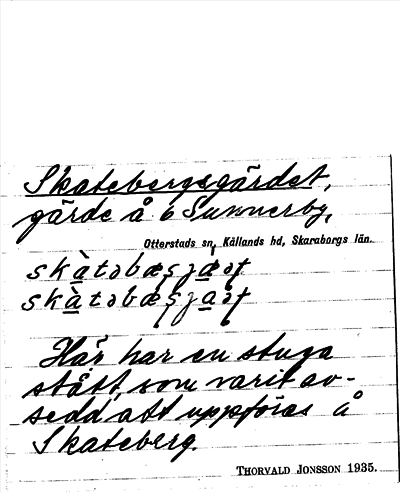 Skatebergsgärdet,
gärde å 6 Sunnerby,
Otterstads sn, Kållands hd, Skaraborgs län.
Här har en stuga
stått, som varit av-
sedd att uppföras å
Skateberg.
THORVALD JONSSON 1935.